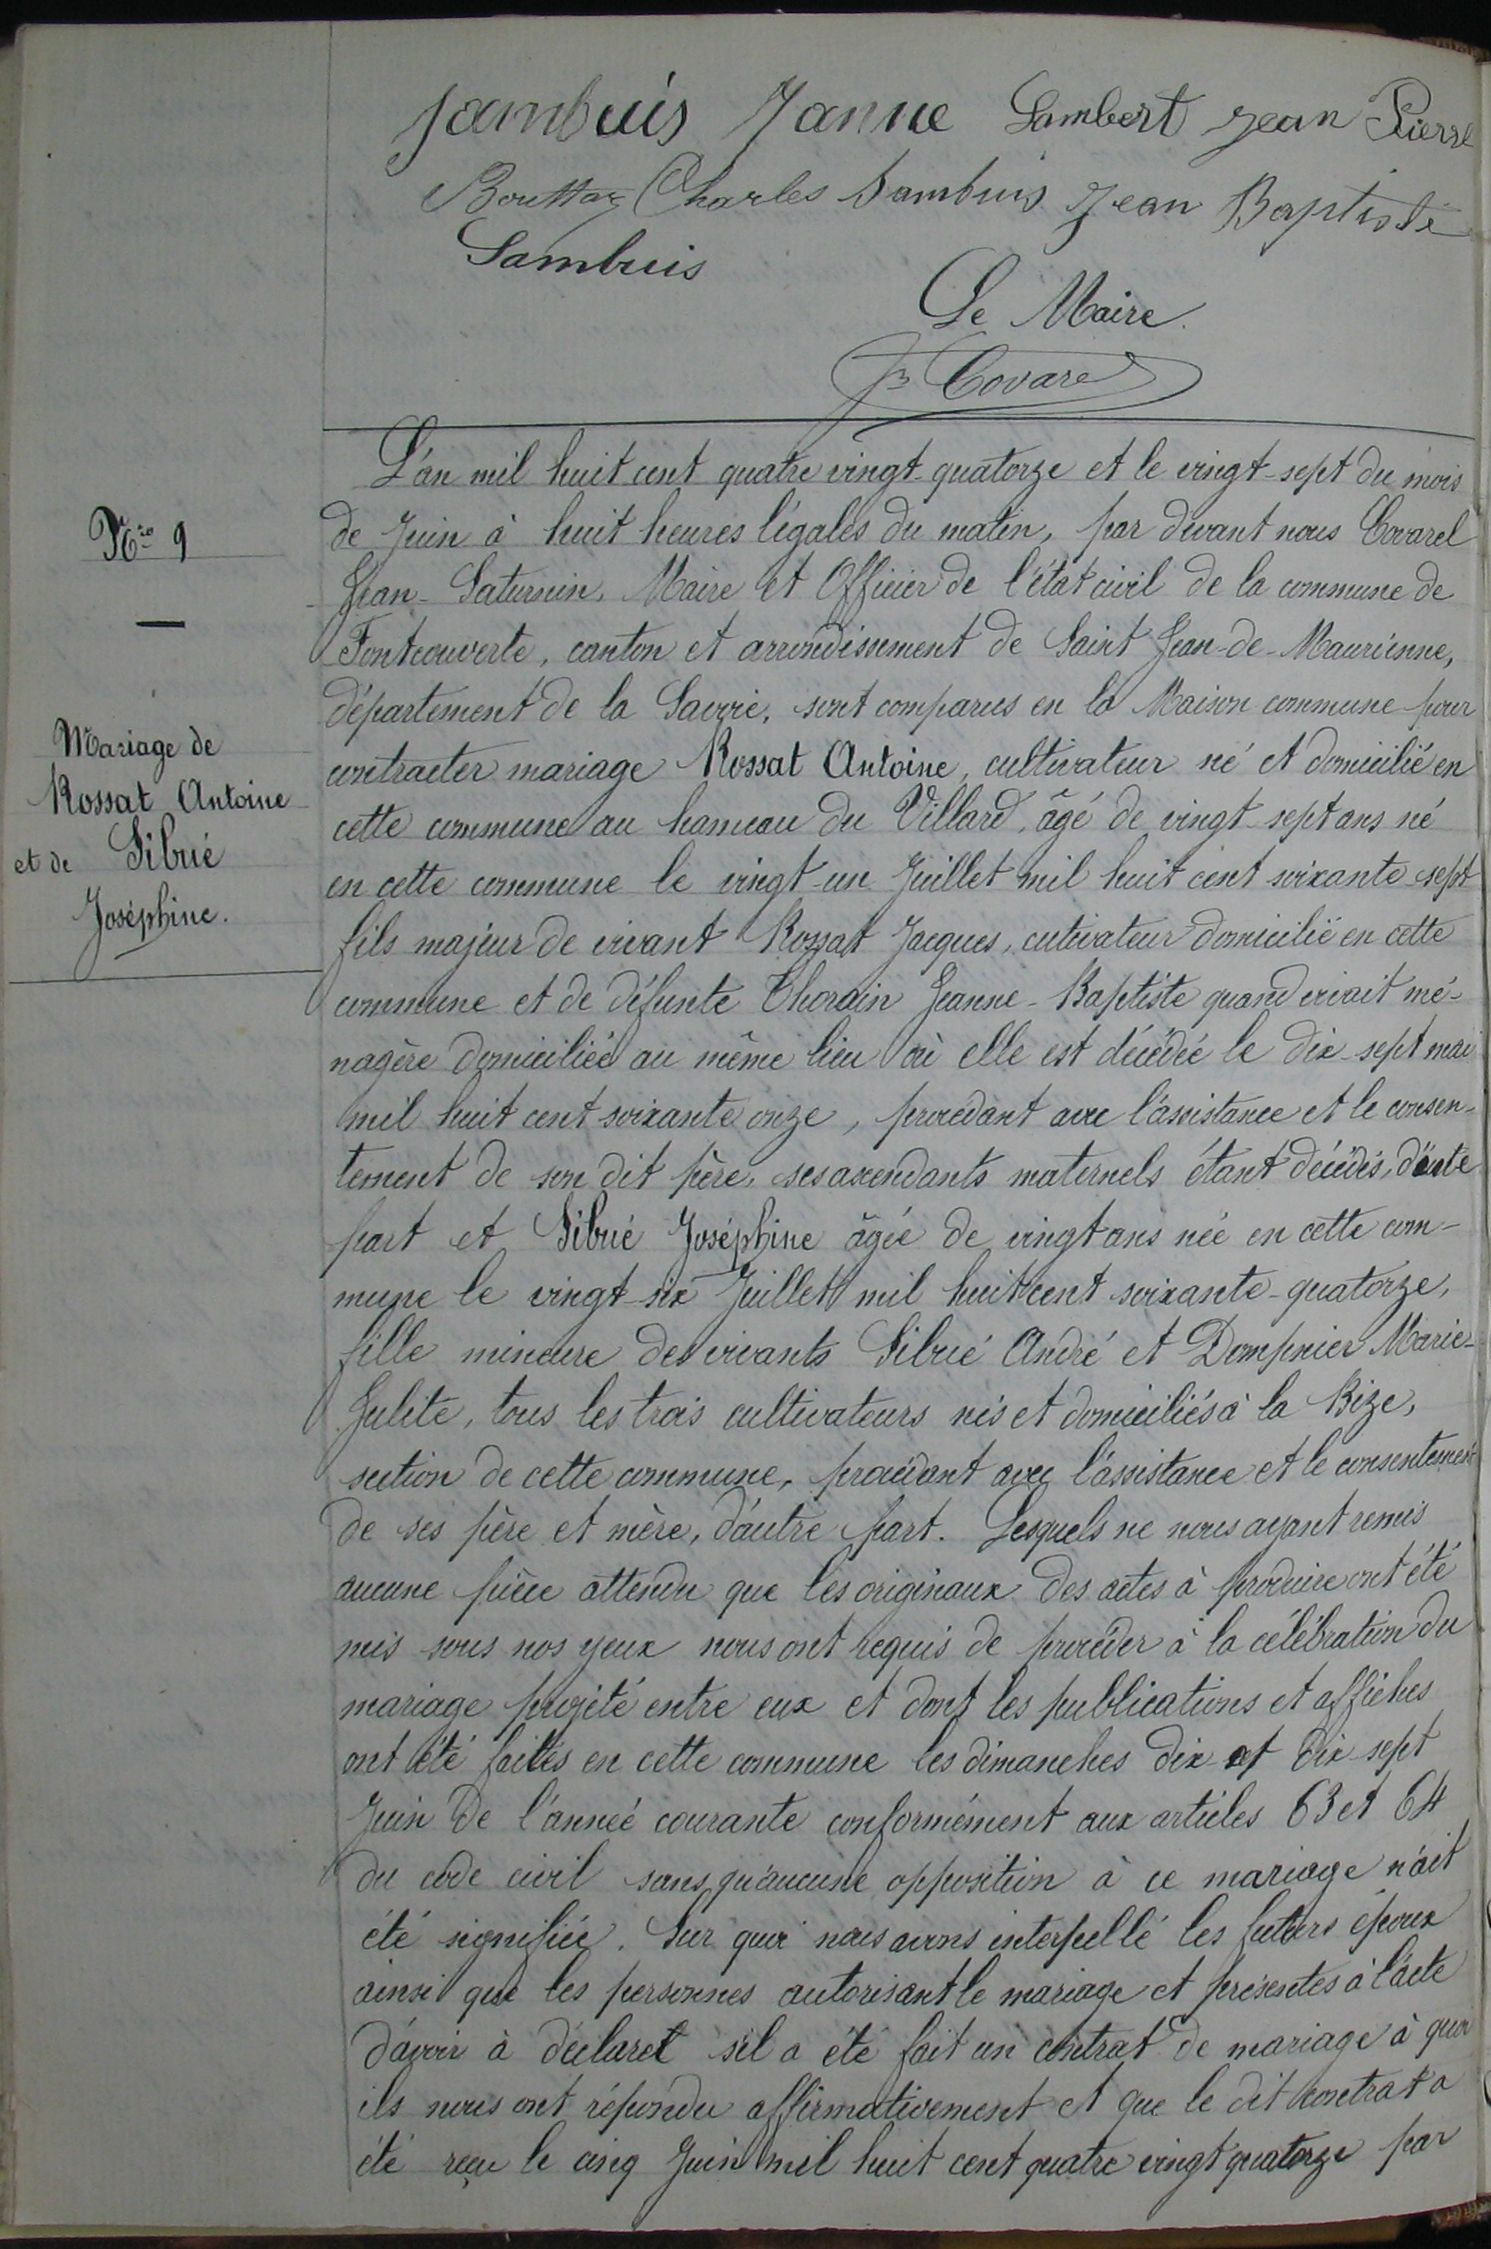 Sambuis Janne Lambert Jean Pierre
Bouttaz Charles Sambuis Jean Baptiste
Sambuis
Le Maire
Covarel
N.ro 9
Mariage de
Rossat Antoine
et de Sibué
Joséphine.
L'an mil huit cent quatre vingt-quatorze et le vingt-sept du mois
de Juin à huit heures légales du matin, par devant nous Covarel
Jean-Saturnin, Maire et Officier de l'état civil de la commune de
Fontcouverte, canton et arrondissement de Saint Jean-de-Maurienne,
département de la Savoie, sont comparus en la Maison commune pour
contracter mariage Rossat Antoine, cultivateur né et domicilié en
cette commune au hameau du Villard, âgé de vingt-sept ans né
en cette commune le vingt-un Juillet mil huit cent soixante-sept
fils majeur de vivant Rossat Jacques, cutivateur domicilié en cette
commune et de défunte Thorain Jeanne-Baptiste quand vivait mé-
nagère domiciliée au même lieu où elle est décédée le dix-sept mai
mil huit cent soixante onze, procédant avec l'assistance et le consen-
tement de son dit père, ses ascendants maternels étant décédés, d'une
part et Sibué Joséphine âgée de vingt ans née en cette com-
mune le vingt-six Juillet mil huit cent soixante-quatorze,
fille mineure des vivants Sibué André et Dompnier Marie-
Julite, tous les trois cultivateurs nés et domiciliés à la Bize,
section de cette commune, procédant avec l'assistance et le consentement
de ses père et mère, d'autre part. Lesquels ne nous ayant remis
aucune pièce attendu que les originaux des actes à produire ont été
mis sous nos yeux nous ont requis de procéder à la célébration du
mariage projeté entre eux et dont les publications et affiches
ont été faites en cette commune les dimanches dix et dix-sept
Juin de l'année courante conformément aux articles 63 et 64
du code civil sans qu'aucune opposition à ce mariage n'ait
été signifiée. Sur quoi nous avons interpellé les futurs époux
ainsi que les personnes autorisant le mariage et présentes à l'acte
d'avoir à déclaret s'il a été fait un contrat de mariage à quoi
ils nous ont répondu affirmativement et que le dit contrat a
été reçu le cinq Juin mil huit cent quatre vingt quatorze par